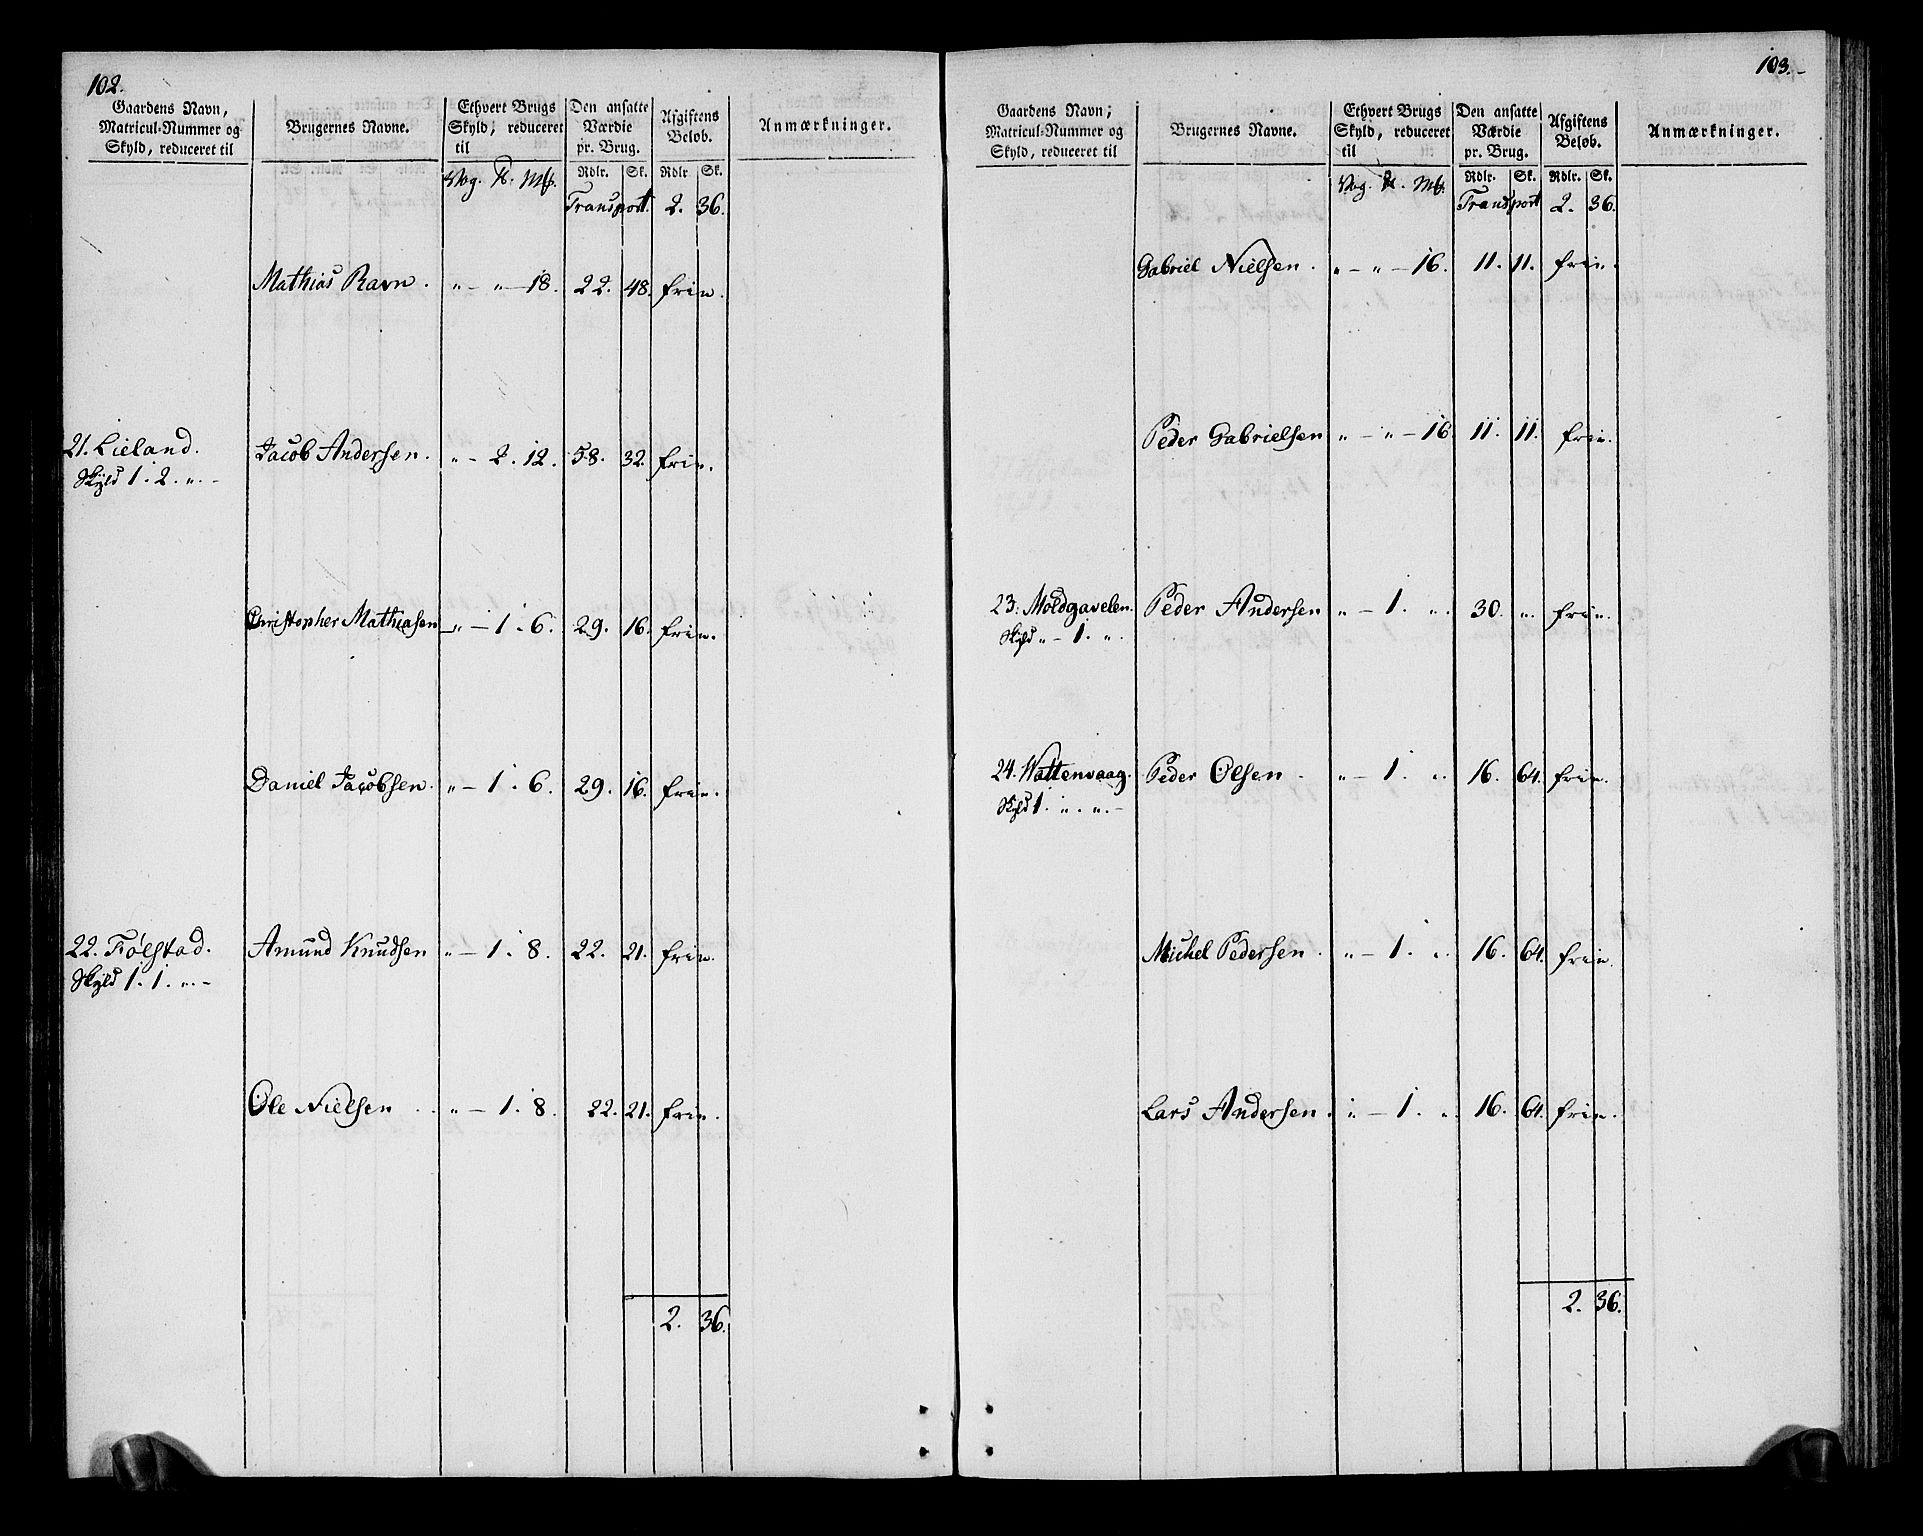 102.
Gaardens Navn, Matricul-Nummer og Skyld, reduceret til
Brugernes Navne.
Ethvert Brugs Skyld, reduceret til
Den ansatte Værdie pr. Brug.
Afgiftens Beløb.
Anmærkninger.
Vog. Mk.
Rdlr. Sk. Rdlr. Sk.
Transport. 2. 36.
Mathias Ravn. „ - „ - 18. 22. 48. frie.
21. Lieland. Jacob Andersen. „ - 2. 12. 58. 32. frie.
Skyld 1. 2. „. -
Christopher Mathiasen „ - 1. 6. 29. 16. frie.
Daniel Jacobsen. „ - 1. 6. 29. 16. frie.
22. Følstad. Amund Knudsen „ - 1. 8. 22. 21. frie.
Skyld 1. 1. „. -
Ole Nielsen . . „ - 1. 8. 22. 21. frie.
2. 36.
103. -
Gaardens Navn; Matricul-Nummer og Skyld, reduceret til
Brugernes Navne.
Ethvert Brugs Skyld, reduceret til
Den ansatte Værdie pr. Brug.
Afgiftens Beløb.
Anmærkninger.
Vog. Mk.
Rdlr. Sk. Rdlr. Sk.
Transport 2. 36.
Gabriel Nielsen. „ - „ - 16. 11. 11. frie.
Peder Gabrielsen „ - „ - 16. 11. 11. frie.
23. Moldgavelen. Peder Andersen „ - 1. „. 30. „. frie.
Skyld „ - 1. „.
24. Wattenvaag. Peder Olsen . „ - 1. „. 16. 64. frie.
Skyld 1. „. „. -
Michel Pedersen . „ - 1. „. 16. 64. frie.
Lars Andersen. „ - 1. „. 16. 64. frie.
2. 36.